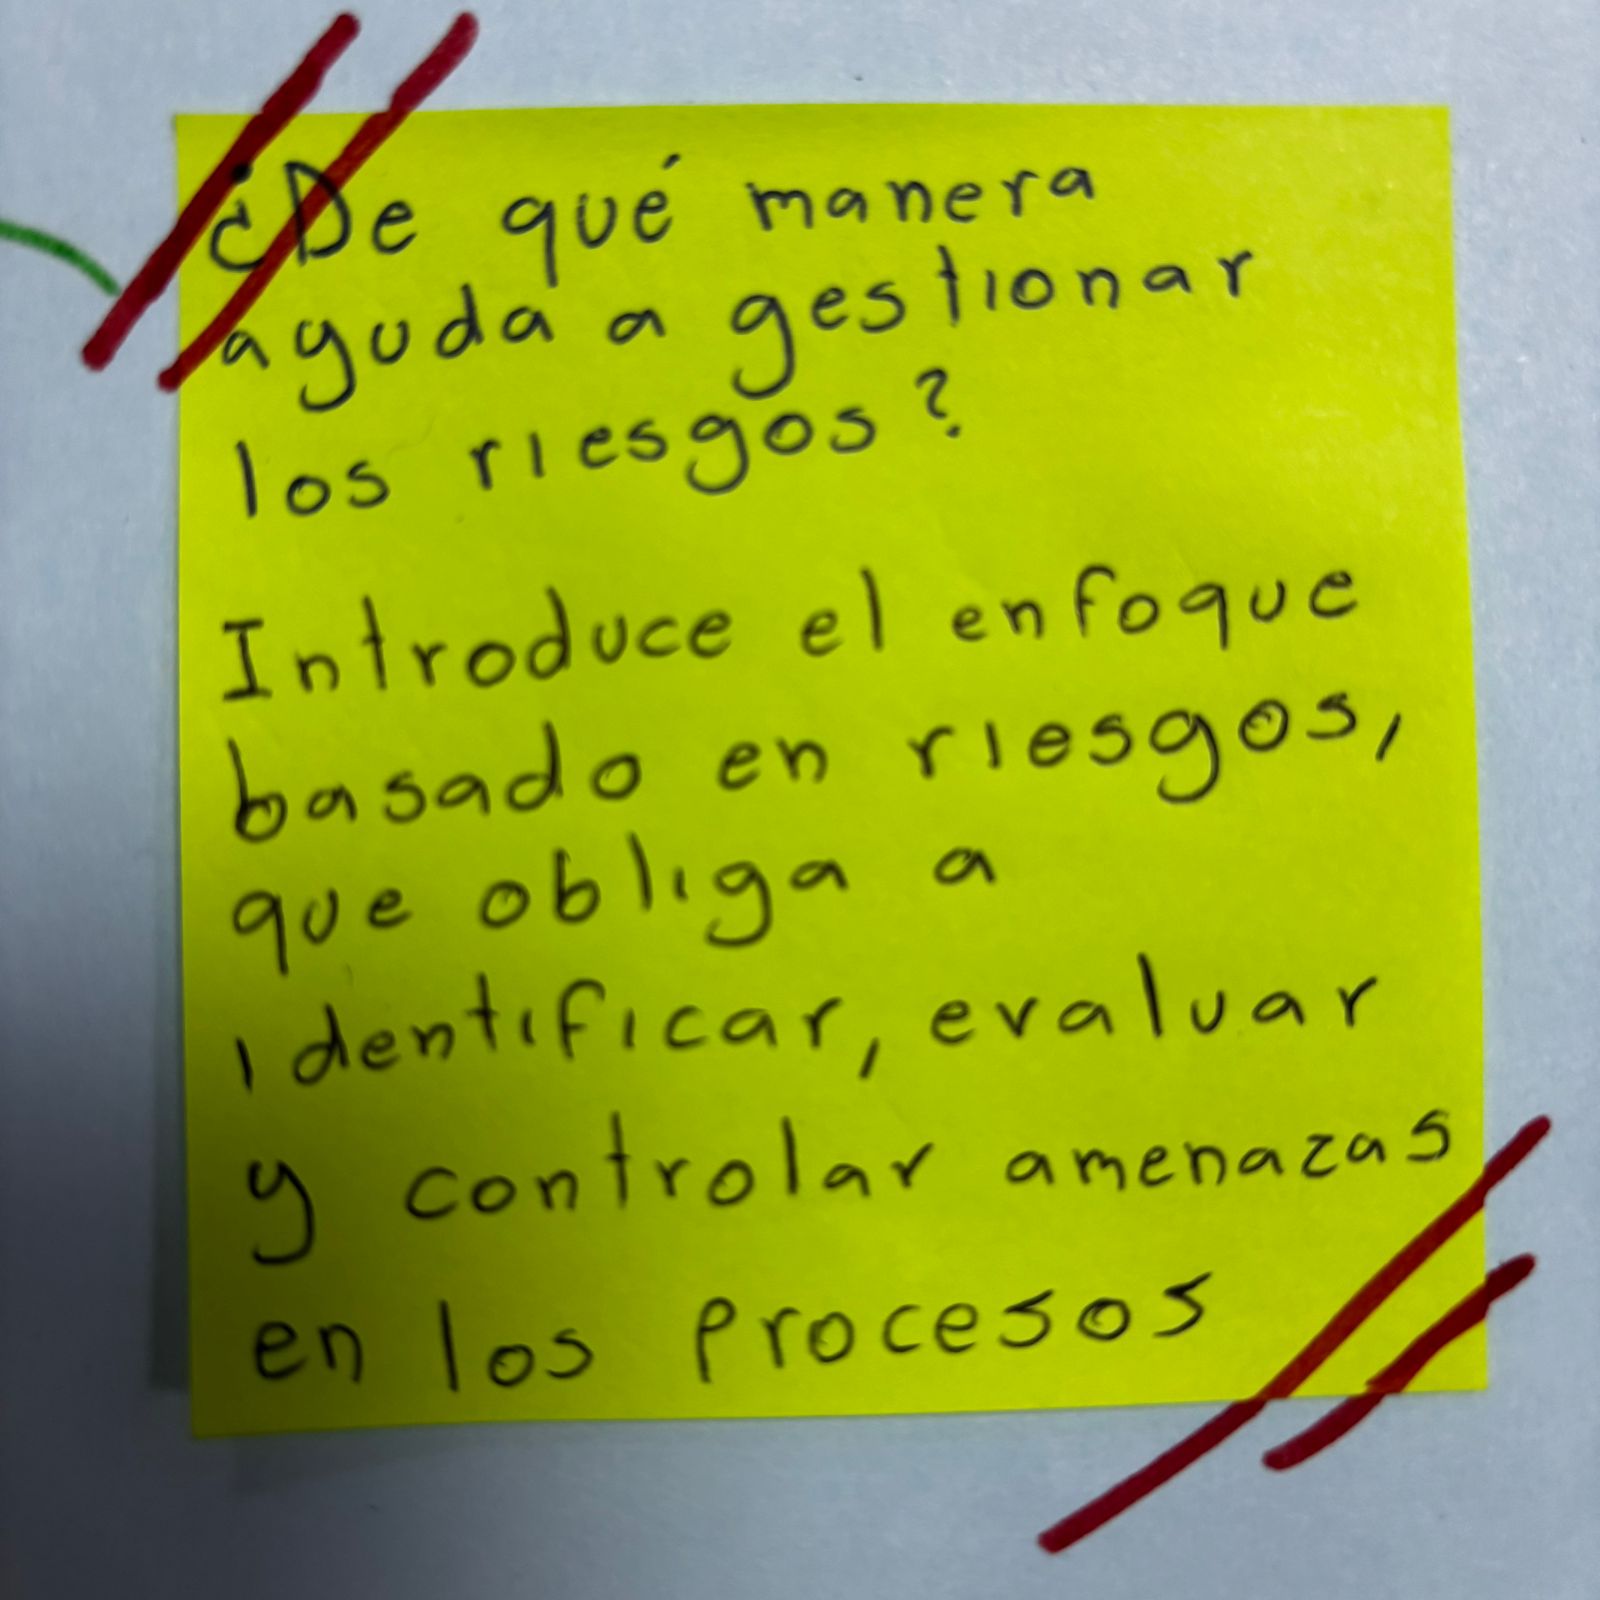 ¿De qué manera
ayuda a gestionar
los riesgos?
Introduce el enfoque
basado en riesgos,
que obliga a
identificar, evaluar
y controlar amenazas
en los procesos